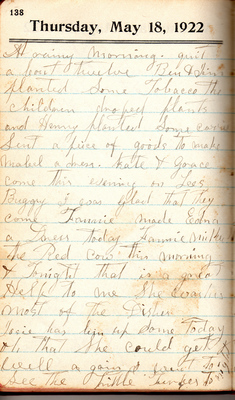 138
Thursday, May 18, 1922
A rainy morning. quit
a bout twelve Ben & Jim
planted Some Tobacco the
Children droped plants
and Henry planted Some corn
Sent a piece of goods to make
Mabel a dress. Kate & Grace
come this evening on Lees
Buggy I was glad that they
come Fannie made Edna
a Dress today Fannie milked
the Red Cow this morning
& tonight that is a great
Help to me She washes
most of the Dishes
Josie has been up Some Today
& that She could get
well a gain
See the little